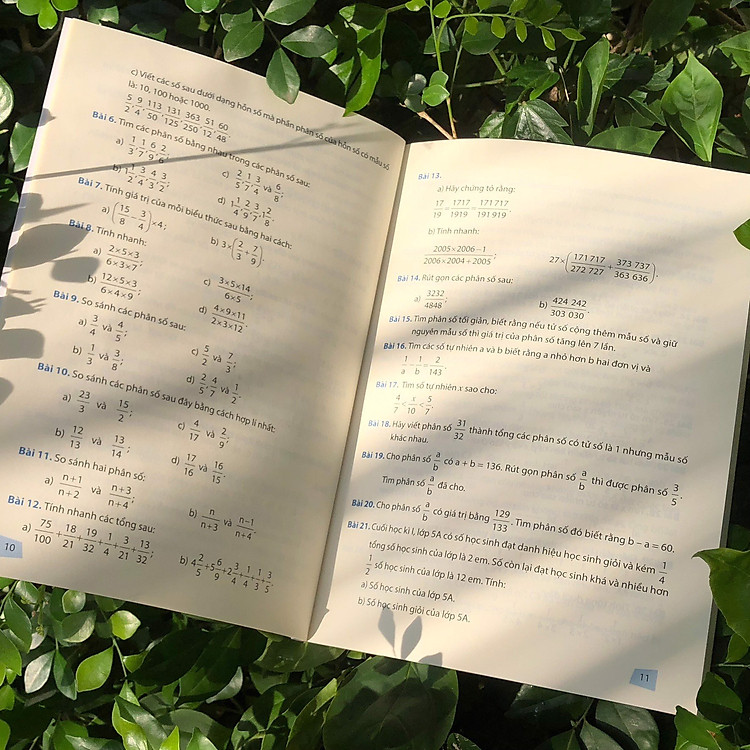 c) Viết các số sau dưới dạng hỗn số mà phần phân số của hỗn số có mẫu số
là: 10, 100 hoặc 1000.
5/2; 9/4; 113/50; 131/125; 363/250; 51/12; 60/48.
Bài 6. Tìm các phân số bằng nhau trong các phân số sau:
a) 1/3; 1/7; 6/9; 2/6;
c) 2/5; 1/7; 3/4 và 6/8;
b) 1/2; 1/4; 3/3; 4/3; 3/2;
d) 1/4; 2/9; 3/7; 12/8;
Bài 7. Tính giá trị của mỗi biểu thức sau bằng hai cách:
a) (15/8 - 3/4) × 4;
b) 3 × (2/3 + 7/9).
Bài 8. Tính nhanh:
a) 2×5×3 / 6×3×7;
c) 3×5×14 / 6×5;
b) 12×5×3 / 6×4×9;
d) 4×9×11 / 2×3×12.
Bài 9. So sánh các phân số sau:
a) 3/4 và 4/5;
c) 5/2 và 7/3;
b) 1/3 và 3/8;
d) 2/5; 4/7 và 1/2.
Bài 10. So sánh các phân số sau đây bằng cách hợp lí nhất:
a) 23/3 và 15/2;
c) 4/17 và 2/9;
b) 12/13 và 13/14;
d) 17/16 và 16/15.
Bài 11. So sánh hai phân số:
a) n+1/n+2 và n+3/n+4;
b) n/n+3 và n-1/n+4.
Bài 12. Tính nhanh các tổng sau:
a) 75/100 + 18/21 + 19/32 + 1/4 + 3/21 + 13/32;
b) 4 2/5 + 5 6/9 + 2 3/4 + 1/4 + 1/3 + 3/5.
10
Bài 13.
a) Hãy chứng tỏ rằng:
17/19 = 1717/1919 = 171 717/191 919.
b) Tính nhanh:
2005×2006−1 / 2006×2004+2005;
27 × (171 717/272 727 + 373 737/363 636).
Bài 14. Rút gọn các phân số sau:
a) 3232/4848;
b) 424 242/303 030.
Bài 15. Tìm phân số tối giản, biết rằng nếu tử số cộng thêm mẫu số và giữ
nguyên mẫu số thì giá trị của phân số tăng lên 7 lần.
Bài 16. Tìm các số tự nhiên a và b biết rằng a nhỏ hơn b hai đơn vị và
1/a − 1/b = 2/143.
Bài 17. Tìm số tự nhiên x sao cho:
4/7 < x/10 < 5/7.
Bài 18. Hãy viết phân số 31/32 thành tổng các phân số có tử số là 1 nhưng mẫu số
khác nhau.
Bài 19. Cho phân số a/b có a + b = 136. Rút gọn phân số a/b thì được phân số 3/5.
Tìm phân số a/b đã cho.
Bài 20. Cho phân số a/b có giá trị bằng 129/133. Tìm phân số đó biết rằng b – a = 60.
Bài 21. Cuối học kì I, lớp 5A có số học sinh đạt danh hiệu học sinh giỏi và kém 1/4
tổng số học sinh của lớp là 2 em. Số còn lại đạt học sinh khá và nhiều hơn
1/2 số học sinh của lớp là 12 em. Tính:
a) Số học sinh của lớp 5A.
b) Số học sinh giỏi của lớp 5A.
11